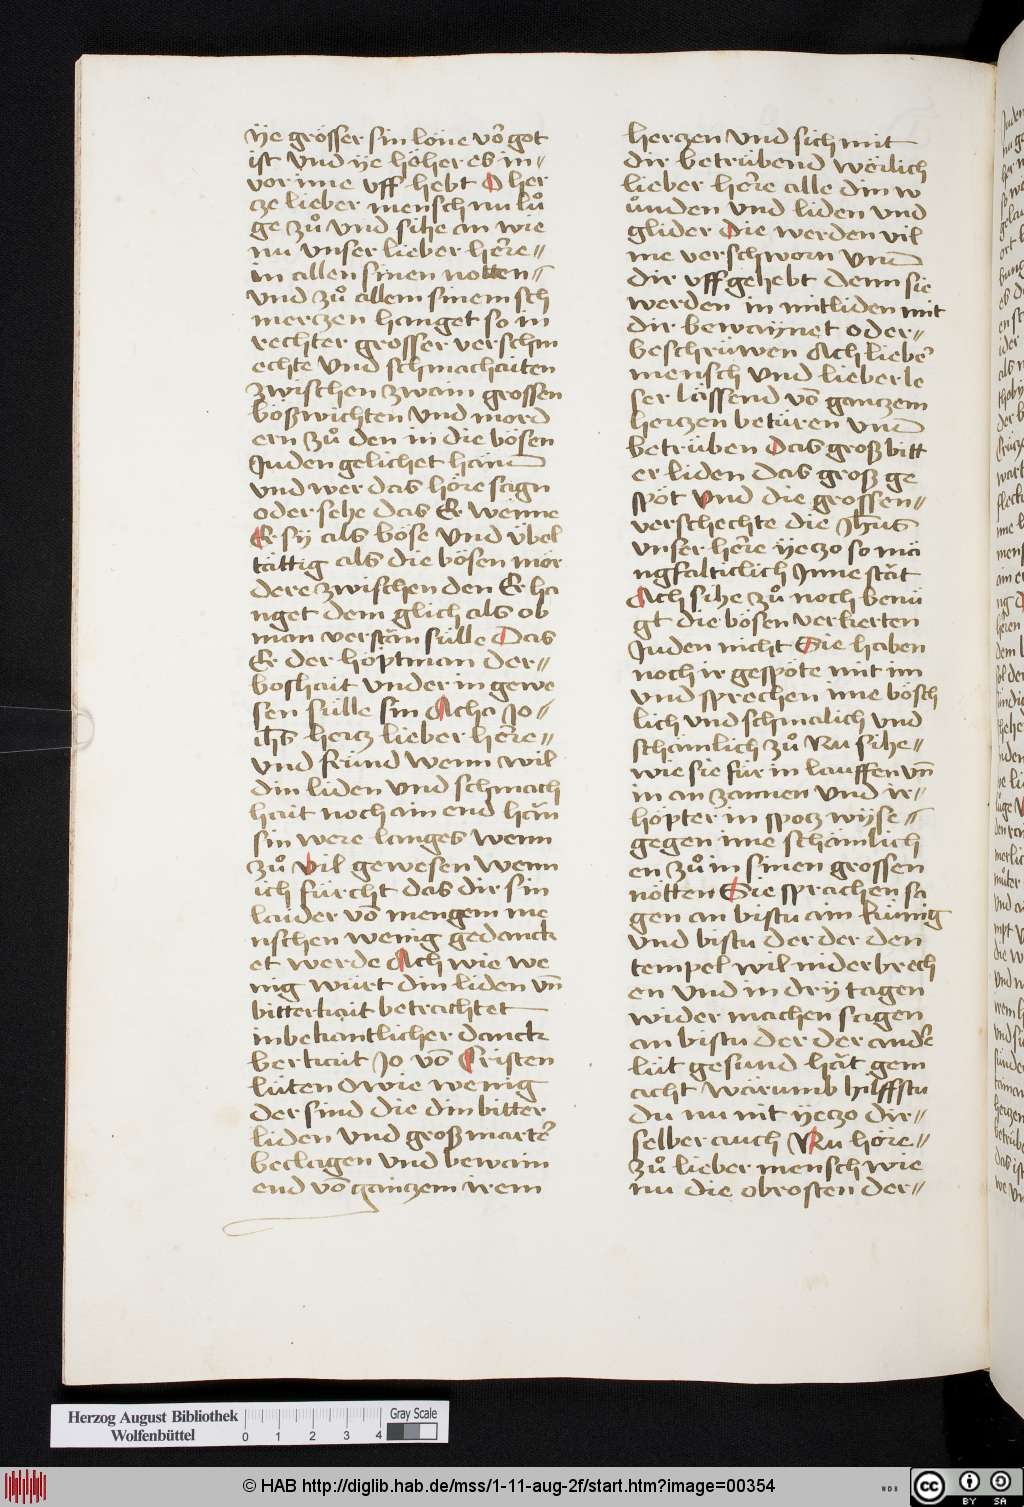 ÿe grösser sin lone võ got
ist vnd ye höher es in-
vor ime vff hebt O her
cze lieber mensch nu lů
ge zů vnd sihe an wie
nu vnser lieber here-
in allen sinen notten-
vnd zů allem sinem sch
merczen hanget so in
rechter grosser verschm
echte vnd schmachaiten
zwischen zwain grossen
bößwichten vnd mord
ern zů den in die bösen
Juden gelichet hand
vnd wer das höre sagn
oder sehe das Er wenne
Er sÿ als böse vnd vbel
tättig als die bösen mör
dere zwischen den Er ha
nget dem glich als ob
man verstän sülle Das
Er der höptman der-
boshait vnder in gewe
sen sülle sin Acha Jo-
ihs hertz lieber here-
vnd fründ wenn wil
din liden vnd schmach
hait noch ain end hän
sin were langes wenn
zů vil gewesen wenn
ich fürcht das dir sin
laider võ mengem me
nschen wenig gedanck
et werde Ach wie we
nig würt din liden vn̄
bitterkait betrachtet
in bekantlicher danck
berkait Jo võ Cristen
lüten O wie wenig
der sind die din bitter
liden vnd groß marter
beclagen vnd bewain
end võ ganczem wem
herczen vnd sich mit
dir betrübend wörlich
lieber here alle din w
ůnden vnd liden vnd
glider Die werden vil
me verschworn vnd
dir vff gehebt denn sie
werden in mitliden mit
dir bewaynet oder-
beschrüwen Ach lieber
mensch vnd lieber le
ser lässend võ ganczem
herczen betüren vnd
betrüben Das groß bitt
er liden das groß ge
spöt vnd die grossen-
verschechte die Jhus
vnser here ÿeczo so mä
ngfalticlich Inne stät
Ach sihe zů noch benü
gt die bösen verkerten
Juden nicht Sie haben
noch ir gespöte mit im
vnd sprechen ime bösch
lich vnd schmalich vnd
schamlich zů Nu sihe-
wie sie für in lauffen vn̄
in an zannen vnd ir-
höpter in spocz wÿse-
gegen ime schämlich
en zů in sinen grossen
nötten Sie sprachen sa
gen an bistu ain künig
vnd bistu der der den
tempel wil niderbrech
en vnd in drÿ tagen
wider machen sagen
an bistu der der ander
lüt gesund hät gem
acht warumb hilffstu
du nu nit ÿeczo dir-
selber auch Nu höre-
zů lieber mensch wie
nu die obrosten der-
Herzog August Bibliothek
Wolfenbüttel
0 1 2 3 4
Gray Scale
© HAB http://diglib.hab.de/mss/1-11-aug-2f/start.htm?image=00354
cc BY SA